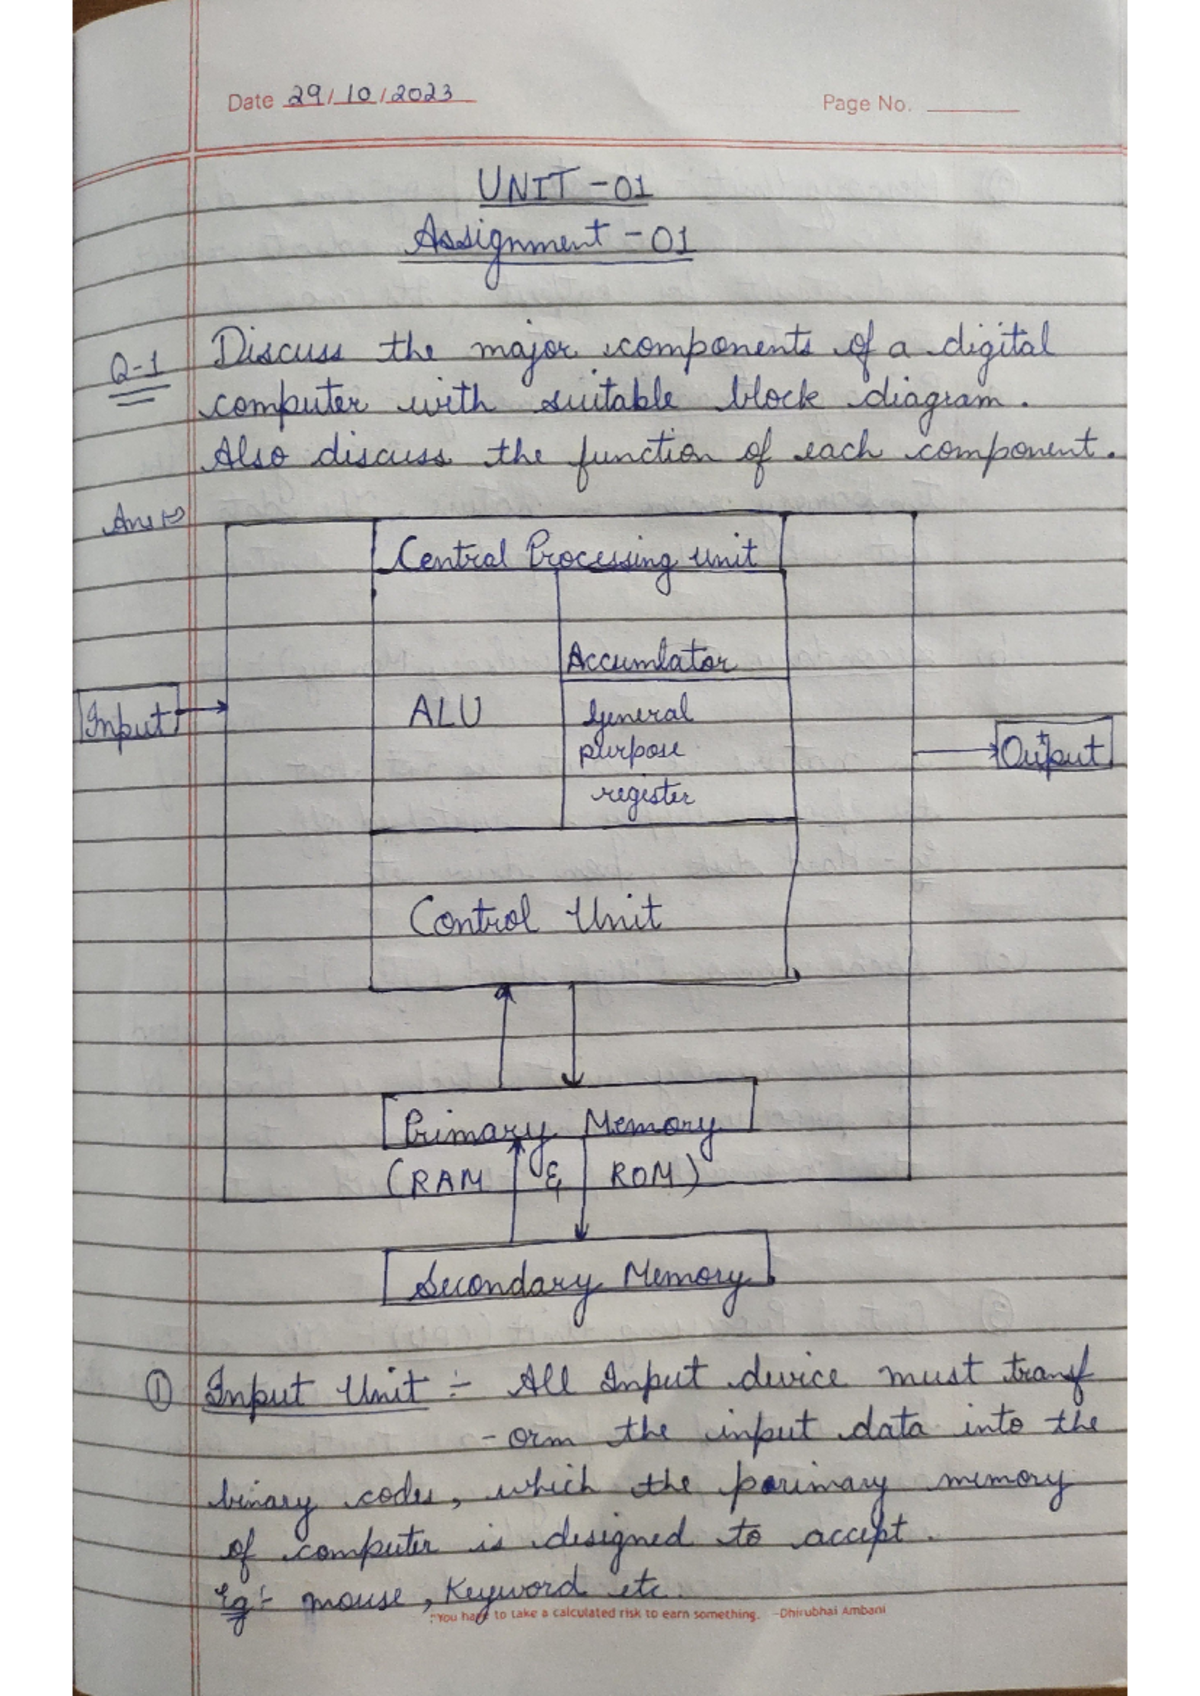 Date 29/10/2023 Page No.
UNIT-01
Assignment-01
Q-1 Discuss the major components of a digital
computer with suitable block diagram.
Also discuss the function of each component.
Ans
Central Processing unit
Accumlator
Input ALU General
purpose
Output
register
Control Unit
Primary Memory
(RAM & ROM)
Secondary Memory
① Input Unit :- All Input device must transf
-orm the input data into the
binary codes, which the primary memory
of computer is designed to accept.
Eg:- mouse, Keyword etc.
"You have to take a calculated risk to earn something. -Dhirubhai Ambani